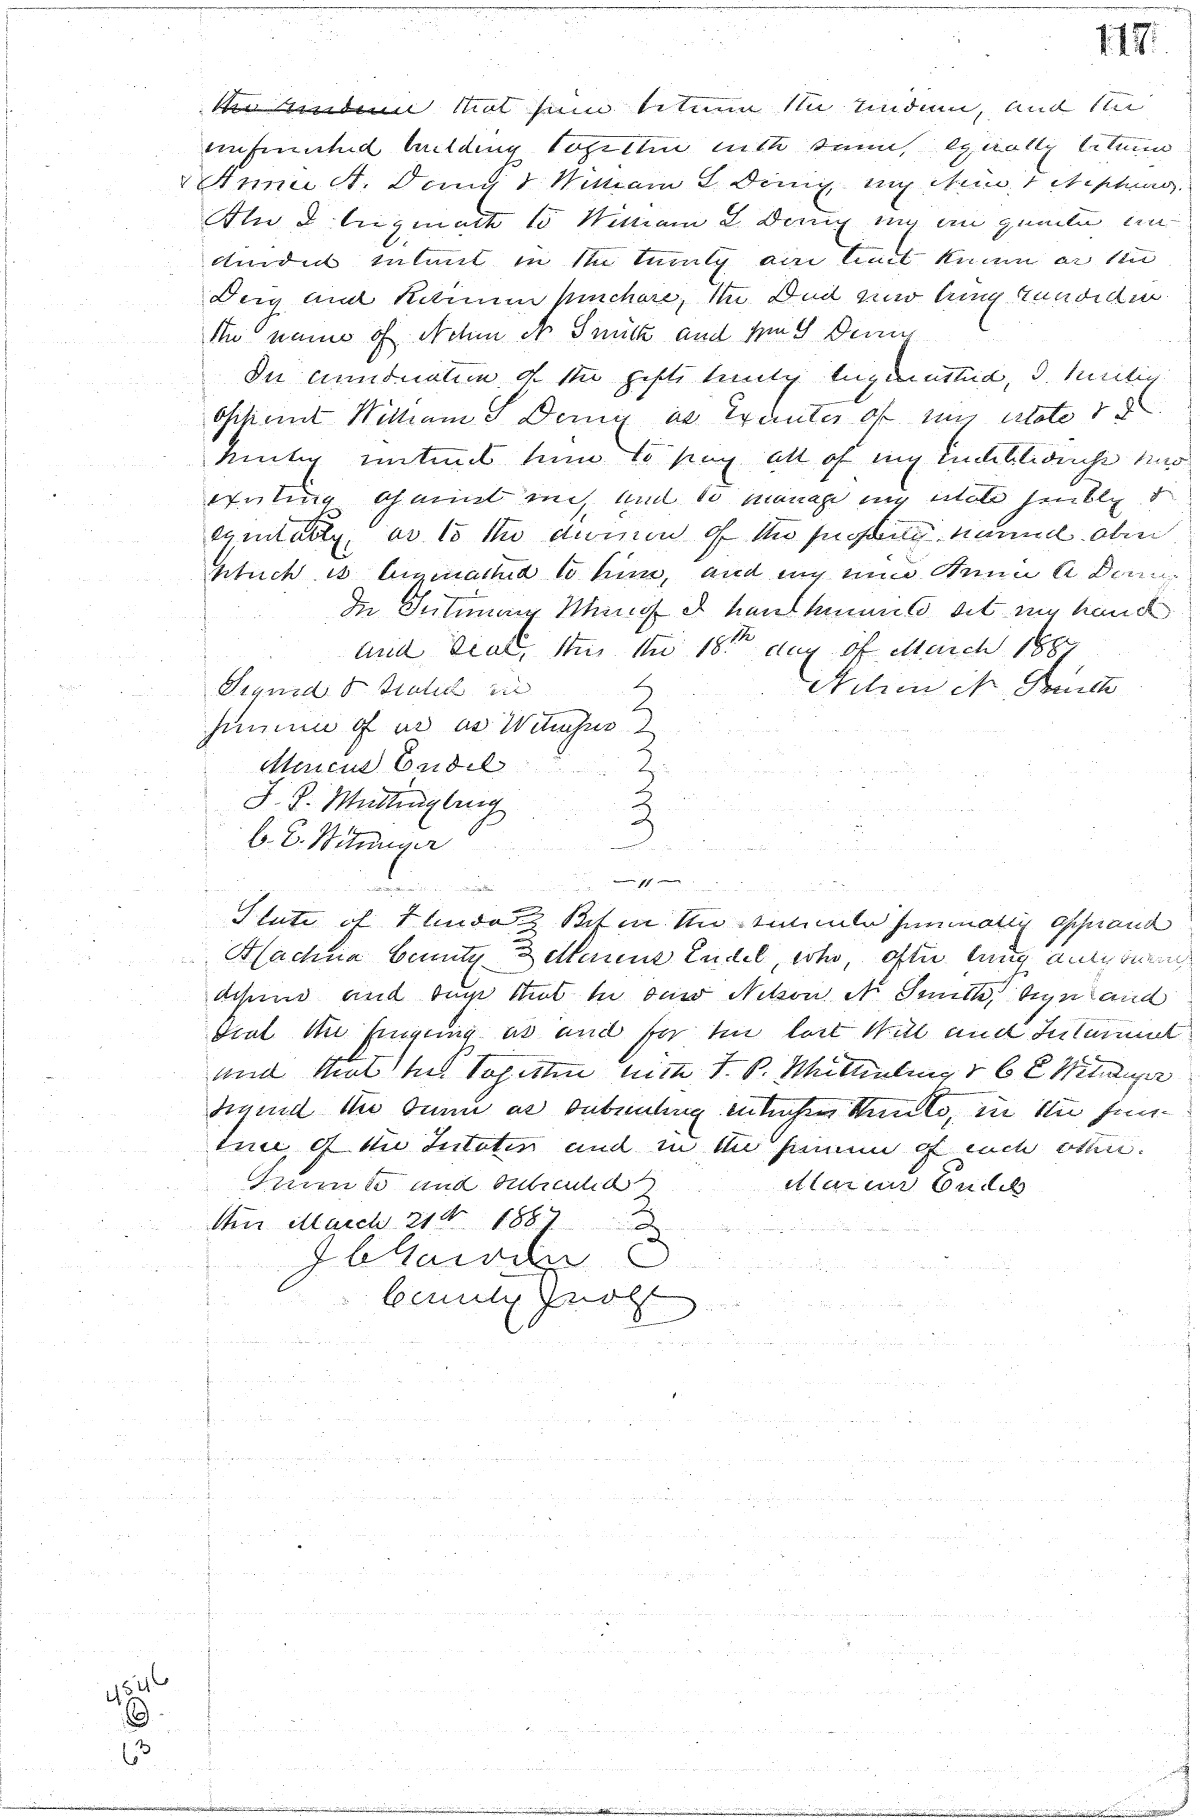 117
the residence that firm between the residence, and the
unfinished building together with same, equally between
Annie A. Denny & William S Denny, my Niece & Nephew.
Also I bequeath to William S Denny my one quarter un-
divided interest in the twenty acre tract known as the
and Robinson purchase, the Deed now being recorded in
the name of Nelson N Smith and Wm S Denny
In consideration of the gifts hereby bequeathed, I hereby
appoint William S Denny as Executor of my estate & I
hereby instruct him to pay all of my indebtedness now
existing against me, and to manage my estate justly &
equitably, as to the division of the property named above
which is bequeathed to him, and my niece Annie A Denny
In Testimony Whereof I have hereunto set my hand
and Seal, this the 18th day of March 1887
Signed & Sealed in Nelson N Smith
presence of us as Witnesses
Marcus Endel
J. P. Whittingburg
C. E. Witzinger
— " —
State of Florida Before the subscriber personally appeared
Alachua County Marcus Endel, who, after being duly sworn,
deposes and says that he saw Nelson N Smith, sign and
Seal the foregoing as and for his last Will and Testament
and that he together with J. P. Whittenburg & C E Witzinger
signed the same as subscribing witnesses thereto, in the pres-
ence of the Testator and in the presence of each other.
Sworn to and subscribed Marcus Endel
this March 21st 1887
J C Gardner
County Judge
4546
63